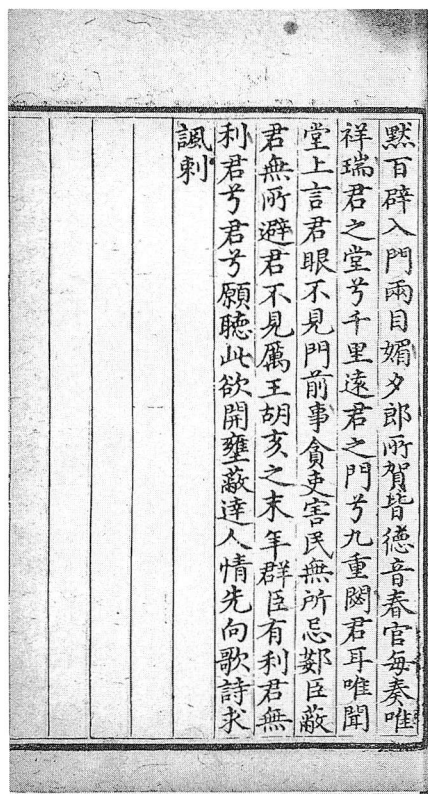 黙百辟入門兩目媚夕郎所賀皆德音春官每奏唯
祥瑞君之堂兮千里遠君之門兮九重閟君耳唯聞
堂上言君眼不見門前事貪吏害民無所忌姦臣蔽
君無所避君不見厲王胡亥之末年群臣有利君無
利君兮君兮願聽此欲開壅蔽達人情先向歌詩求
諷刺